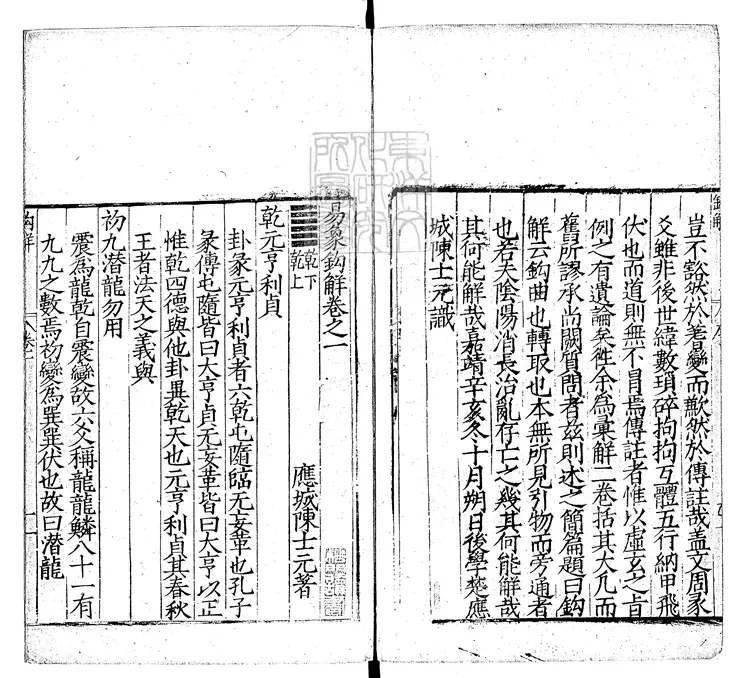 豈不谿然於著變而歉然於傳註哉盖文周彖
爻雖非後世緯數瑣碎拘拘互體五行納甲飛
伏也而道則無不冐焉傳註者惟以虛玄之旨
例之有遺論矣徃余為彙解二卷括其大凡而
舊所謬承尚闕質問者玆則述之簡篇題曰鈎
解云鈎曲也轉取也本無所見引物而旁通者
也若夫陰陽消長治亂存亡之幾其何能解哉
其何能解哉嘉靖辛亥冬十月朔日後學楚應
城陳士元識
易象鈎解卷之一
應城陳士元著
乾下
乾上
乾元亨利貞
卦彖元亨利貞者六乾屯隨臨无妄革也孔子
彖傳屯隨皆曰大亨貞无妄革皆曰大亨以正
惟乾四德與他卦異乾天也元亨利貞其春秋
王者法天之義與
初九潛龍勿用
震為龍乾自震變故六爻稱龍龍鱗八十一有
九九之數焉初變為巽巽伏也故曰潛龍